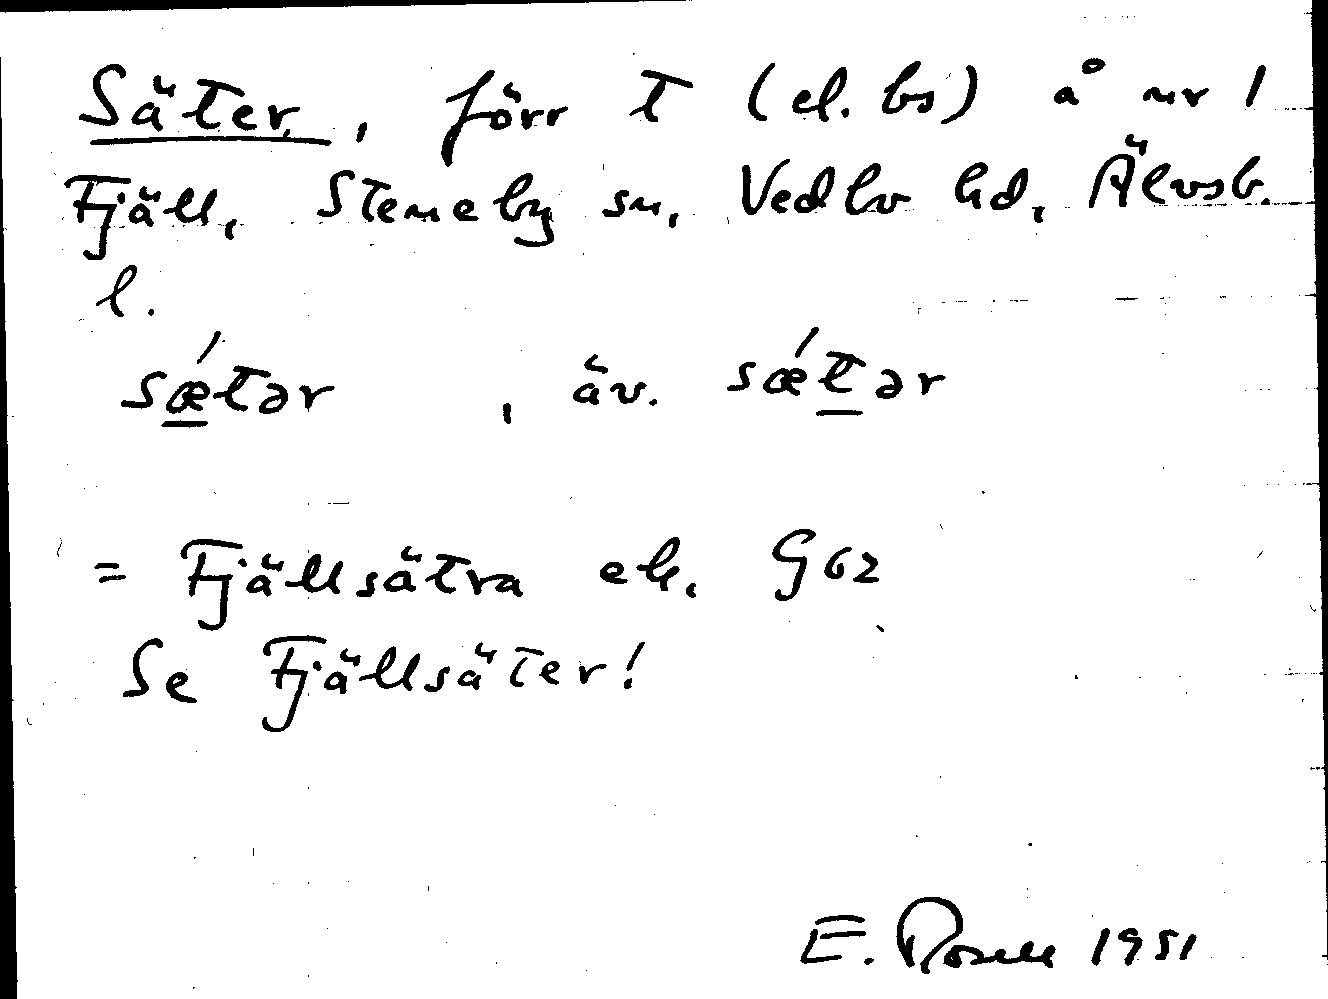 Säter, förr t (el. bs) å nr 1
Fjäll, Steneby sn, Vedbo hd, Älvsb.
l.
sǽtər, äv. sǽtər
= Fjällsätra ek. G62
Se Fjällsäter!
E. Rosell 1951